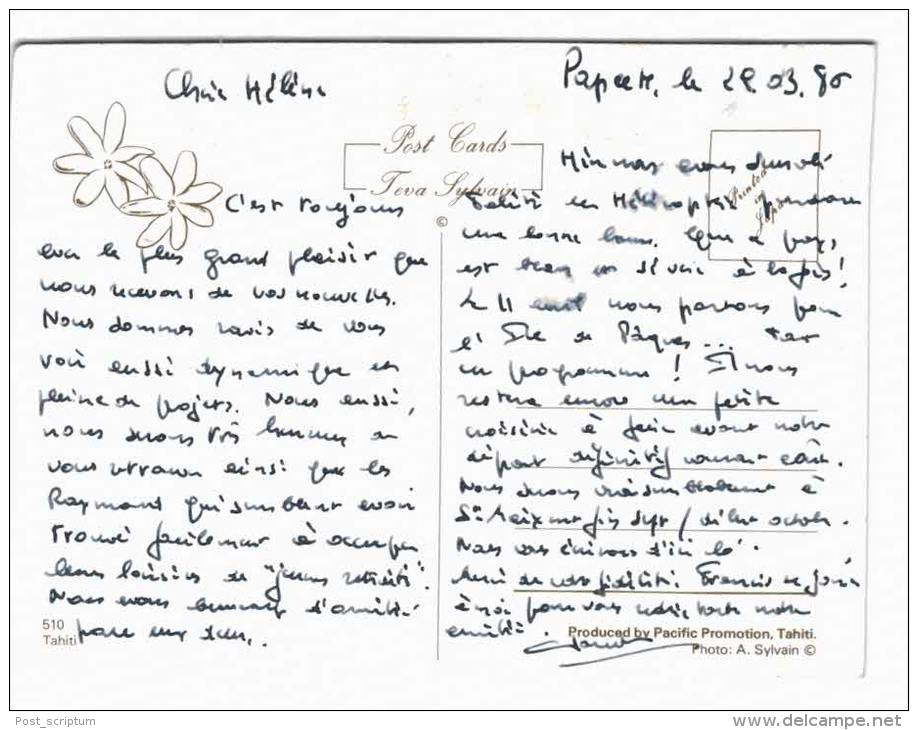 Chère Hélène
Papeete, le 29.03.86
Post Cards
Teva Sylvain
©
Printed in
C'est toujours
avec le plus grand plaisir que
nous recevons de vos nouvelles.
Nous sommes ravis de vous
voir aussi dynamique et
pleine de projets. Nous aussi,
nous serons très heureux de
vous retrouver ainsi que les
Raymond qui semblent avoir
trouvé facilement à occuper
leurs loisirs de "jeunes retraités".
Nous avons beaucoup d'amitié
pour eux deux.
510
Tahiti
Hier nous avons survolé
Tahiti en Hélicoptère pendant
une bonne heure. Que ce pays
est beau et varié à la fois!
Le 11 avril nous partons pour
l'Ile de Pâques...
au programme! Il nous
restera encore une petite
croisière à faire avant notre
départ définitif courant août.
Nous serons vraisemblablement à
St Maixent fin sept / début octobre.
Nous vous écrirons d'ici là.
Merci de votre fidélité. Francis se joint
à moi pour vous redire toute notre
amitié.
Produced by Pacific Promotion, Tahiti.
Photo: A. Sylvain ©
Post_scriptum
delcampe.net